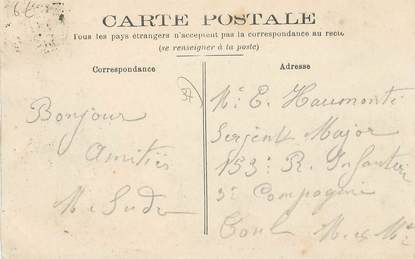 CARTE POSTALE
Tous les pays étrangers n'acceptent pas la correspondance au recto
(se renseigner à la poste)
Correspondance
Adresse
Bonjour
Amitiés
Mr E. Haumonté
Sergent Major
153e R. Infanterie
3e Compagnie
Toul M. et Mlle